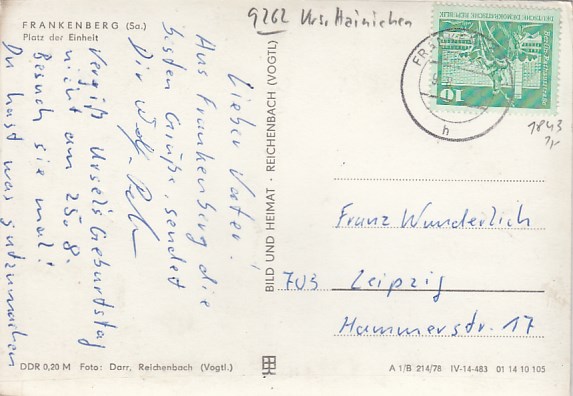 FRANKENBERG (Sa.)
Platz der Einheit
9262 Krs. Hainichen
Lieber Vater!
Aus Frankenberg die
besten Grüße, sendet
Dir Wolf-Peter
Vergiß Ursels Geburtstag
nicht am 25.8.
Besuch sie mal!
Du hast was gutzumachen
BILD UND HEIMAT · REICHENBACH (VOGTL)
DEUTSCHE DEMOKRATISCHE REPUBLIK
10
h
1843
Franz Wunderlich
703 Leipzig
Hammerstr. 17
DDR 0,20 M Foto: Darr, Reichenbach (Vogtl.)
A 1/B 214/78 IV-14-483 01 14 10 105